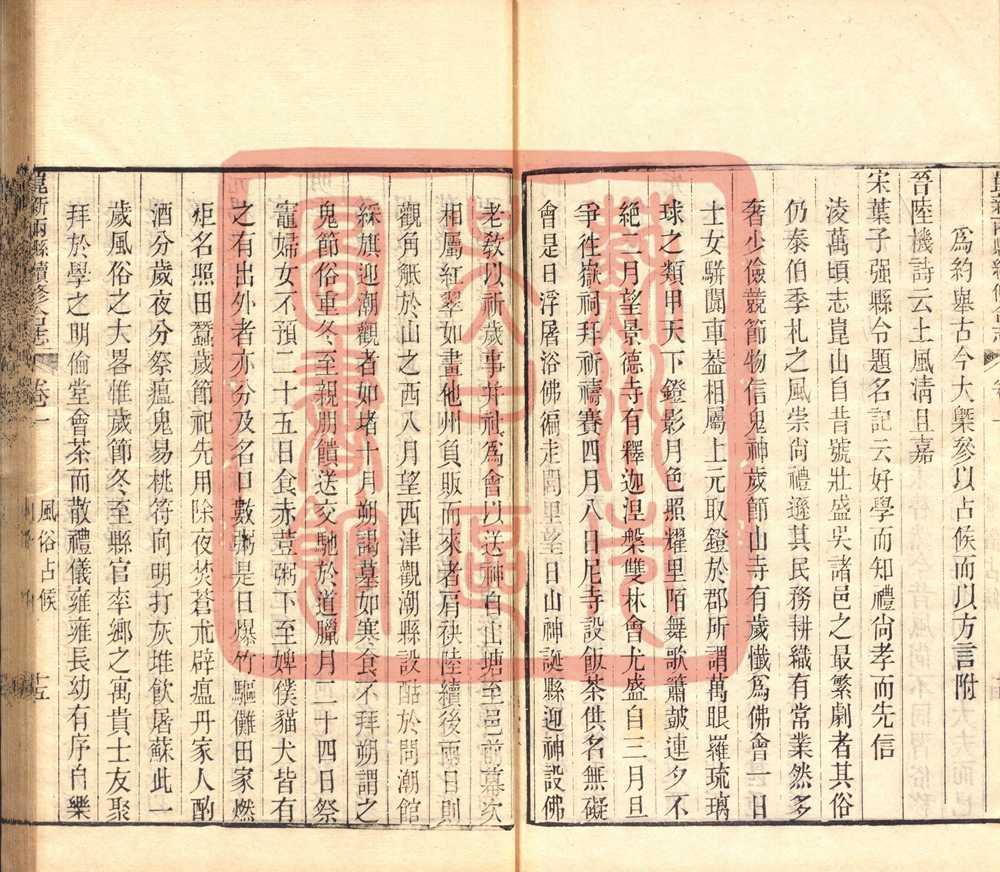 爲約舉古今大槩參以占候而以方言附
晉陸機詩云土風淸且嘉
宋葉子强縣令題名記云好學而知禮尙孝而先信
淩萬頃志崑山自昔號壯盛吳諸邑之最繁劇者其俗
仍泰伯季札之風崇尙禮遜其民務耕織有常業然多
奢少儉競節物信鬼神歲節山寺有歲懺爲佛會一日
士女駢闐車葢相屬上元取鐙於郡所謂萬眼羅琉璃
球之類甲天下鐙影月色照耀里陌舞歌簫鼓連夕不
絕二月望景德寺有釋迦涅槃雙林會尤盛自三月旦
爭徃嶽祠拜祈禱賽四月八日尼寺設飯茶供名無礙
會是日浮屠浴佛徧走閭里望日山神誕縣迎神設佛
老敎以祈歲事幷社爲會以送神自山塘至邑前幕次
相屬紅翠如畫他州負販而來者肩袂陸續後兩日則
觀角觝於山之西八月望西津觀潮縣設酤於問潮館
綵旗迎潮觀者如堵十月朔謁墓如寒食不拜朔謂之
鬼節俗重冬至親朋饋送交馳於道臘月二十四日祭
竈婦女不預二十五日食赤荳粥下至婢僕貓犬皆有
之有出外者亦分及名口數粥是日爆竹驅儺田家燃
炬名照田蠶歲節祀先用除夜焚蒼朮辟瘟丹家人酌
酒分歲夜分祭瘟鬼易桃符向明打灰堆飮屠蘇此一
歲風俗之大畧惟歲節冬至縣官率鄉之寓貴士友聚
拜於學之明倫堂會茶而散禮儀雍雍長幼有序自樂
崑新兩縣續修合志 卷一 風俗占候